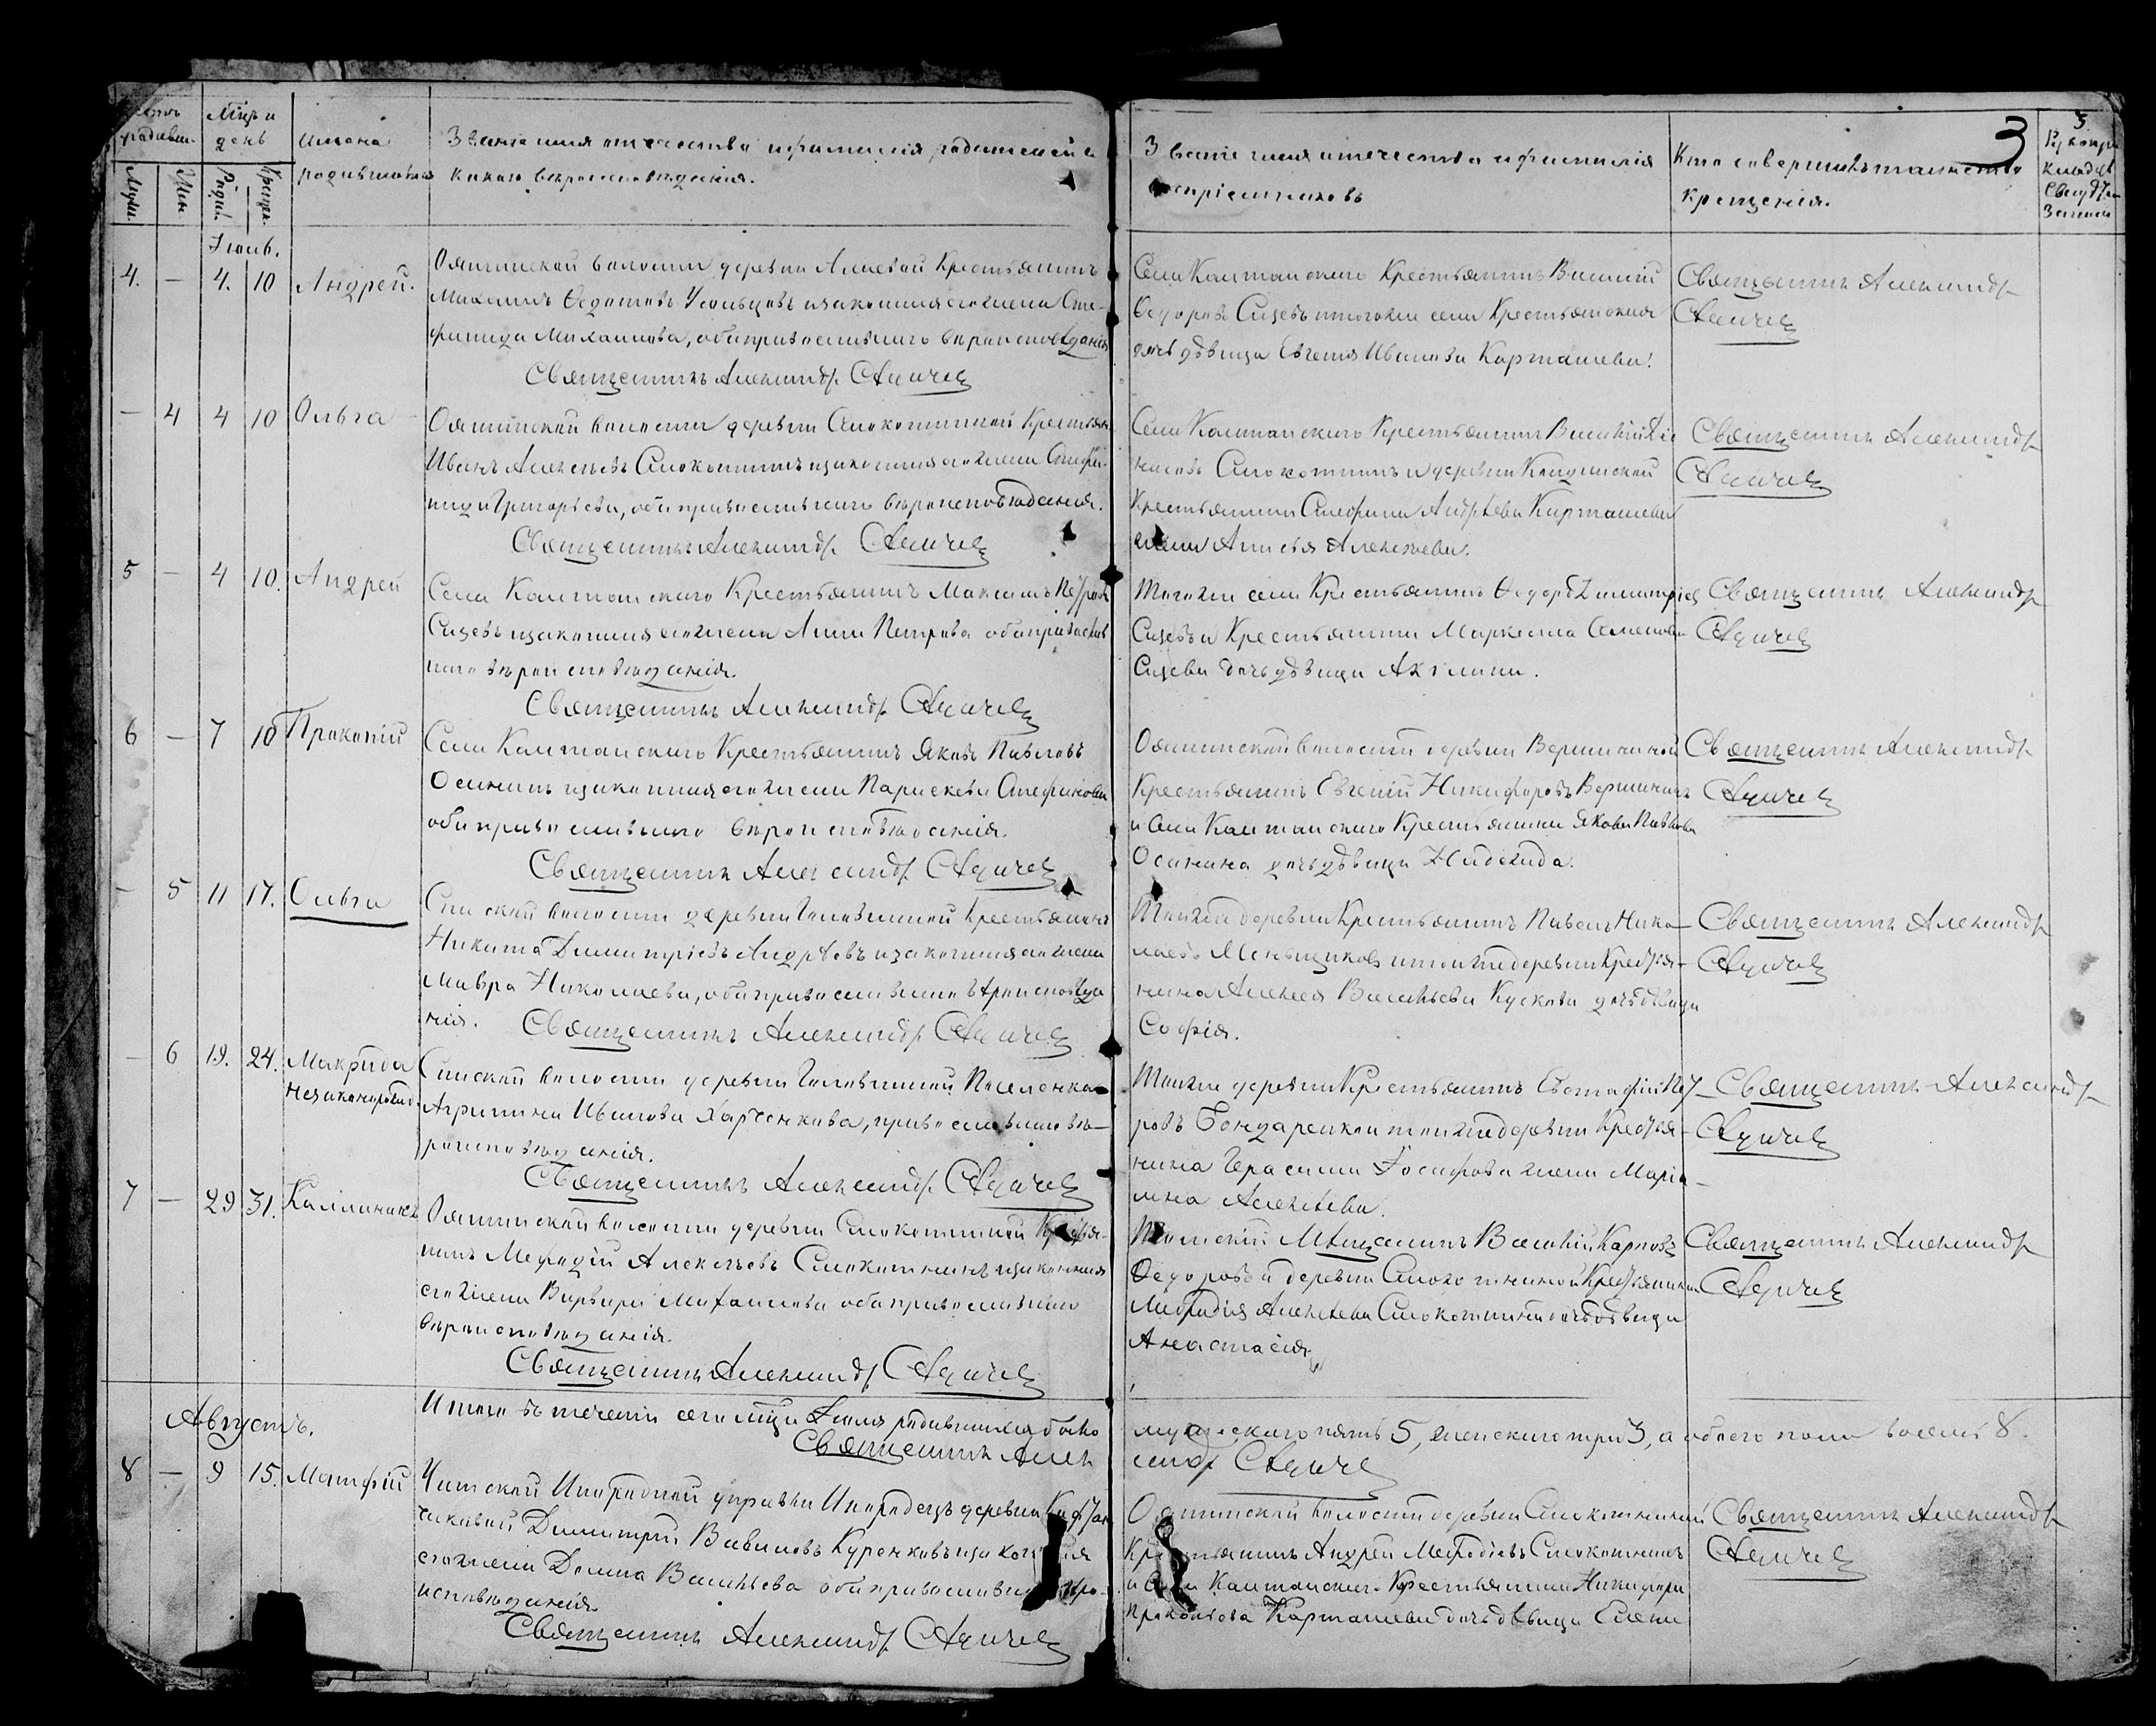 Счетъ родивш.
Муж.
Жен.
Мѣц. и день
Рожд.
Крещен.
Имена родившихся
Званіе имя отчество и фамилія родителей и
какого вѣроисповѣданія.
Званіе имя отчество и фамилія
воспріемниковъ
Кто совершилъ таинство
крещенія.
3
5
Іюль.
4. — 4. 10 Андрей.
Ояшинской волости деревни Крестьянинъ
Федотовъ Усольцовъ и законная его жена Сте-
фанида Михаилова, оба православнаго вѣроисповѣданія
Священникъ Александръ
Села Каштанскаго Крестьянинъ Василий
Федоровъ Сизевъ и того же села Крестьянская
дочь дѣвица Евгенія Иванова Карташева.
Священникъ Александръ
— 4 4 10 Ольга
Ояшинской волости деревни Смокотиной Крестьян.
Иванъ Алексѣевъ Смокотинъ и законная его жена Стефа-
нида Григорьева, оба православнаго вѣроисповѣданія.
Священникъ Александръ
Села Каштанскаго Крестьянинъ Василий
Смокотинъ и деревни Кандинской
Крестьянина Стефана Андрѣева Карташева
жена Анисья Алексѣева.
Священникъ Александръ
5 — 4 10. Андрей
Села Каштанскаго Крестьянинъ Максимъ Петровъ
Сизевъ и законная его жена Анна Петрова оба православ
наго вѣроисповѣданія.
Священникъ Александръ
Того же села Крестьянинъ Федоръ Димитріев
Сизевъ и Крестьянина Маркелла Семенова
Сизева дочь дѣвица Акилина.
Священникъ Александръ
6 — 7 10 Прокопій
Села Каштанскаго Крестьянинъ Яковъ Павловъ
Осининъ и законная его жена Параскева Стефанова
оба православнаго вѣроисповѣданія.
Священникъ Александръ
Ояшинской волости деревни Вершининой
Крестьянинъ Евгеній Никифоровъ Вершининъ
и села Каштанскаго Крестьянина Якова Павлова
Осинина дочь дѣвица
Священникъ Александръ
— 5 11 17. Ольга
Спасской волости деревни Головиной Крестьянинъ
Никита Димитріевъ Андрѣевъ и законная его жена
Мавра Николаева, оба православнаго вѣроисповѣда
нія. Священникъ Александръ
Той же деревни Крестьянинъ Павелъ Нико-
лаевъ Меньщиковъ и той же деревни Крестья-
нина Алексея Васильева Кускова дочь дѣвица
Софія.
Священникъ Александръ
— 6 19. 24. Макрида
незаконорожд.
Спасской волости деревни Головиной Поселенка
Агрипина Иванова Харченкова, православнаго вѣ-
роисповѣданія.
Священникъ Александръ
Той же деревни Крестьянинъ Евстафій Пет-
ровъ Бондаренко и той же деревни Крестья-
нина Герасима Іосифова жена Марiа-
мна Алексѣева.
Священникъ Александръ
7 — 29 31. Каллиникъ
Ояшинской волости деревни Смокотиной Крестья-
нинъ Мефодій Алексѣевъ Смокотнинъ и законная
его жена Варвара Михаилова оба православнаго
вѣроисповѣданія.
Священникъ Александръ
Томскій Мѣщанинъ Василій Карповъ
Федоровъ и деревни Смокотниной Крестьянина
Мефодія Алексѣева Смокотнина дочь дѣвица
Анастасія.
Священникъ Александръ
Итого въ теченіи сего мѣца Іюля родившихся было
мужескаго пять 5, женскаго три 3, а обоего пола восемь 8.
Священникъ Алек
сандръ
Августъ.
8 — 9 15. Матфій
Чатской Инородной управы Инородецъ деревни
Димитрій Вавиловъ Куренковъ и законная
его жена Домна Васильева оба православнаго вѣро-
исповѣданія.
Священникъ Александръ
Ояшинской волости деревни Смокотниной
Крестьянинъ Андрей Мефодіевъ Смокотнинъ
и села Каштанскаго Крестьянина Никифора
Прокопьева Карташева дочь дѣвица Елена
Священникъ Александръ